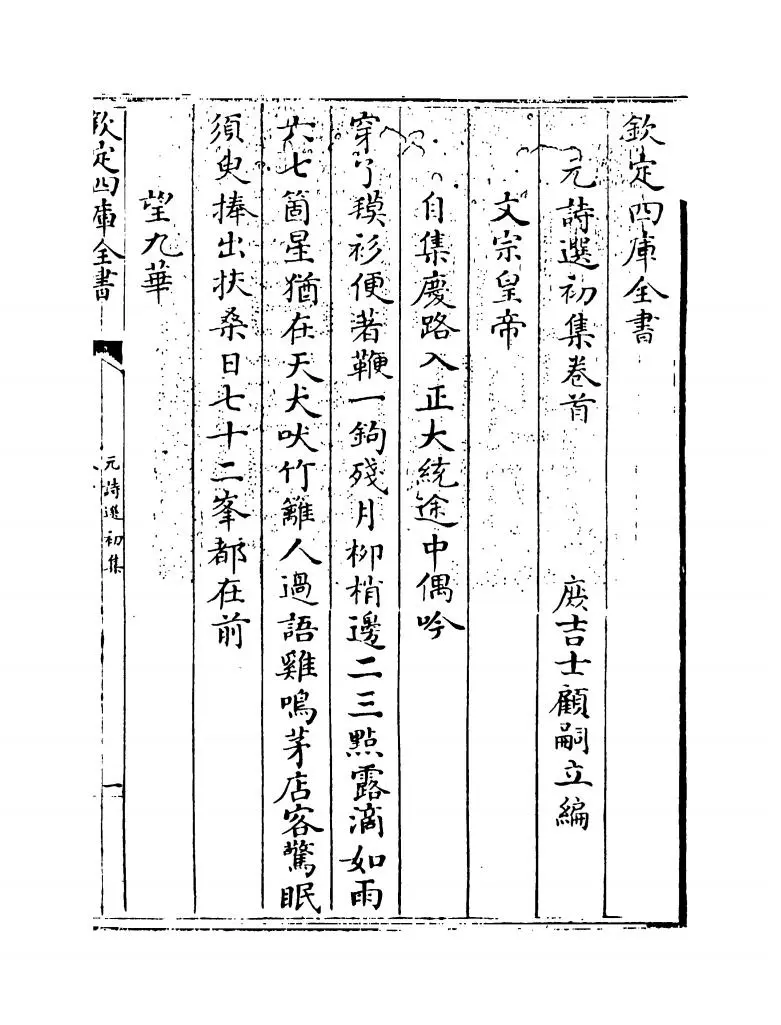 欽定四庫全書
元詩選初集卷首
庶吉士顧嗣立編
文宗皇帝
自集慶路入正大統途中偶吟
穿了𦆯衫便著鞭一鉤殘月柳梢邊二三點露滴如雨
六七箇星猶在天犬吠竹籬人過語雞鳴茅店客驚眠
須臾捧出扶桑日七十二峯都在前
望九華
欽定四庫全書
元詩選初集
一